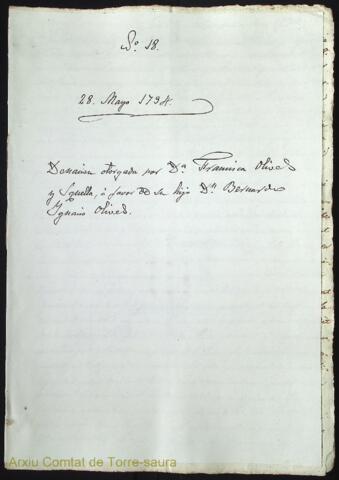 Nº 18.
28. Mayo 1734.
Donacion otorgada por Dª Francisca Olives
y Squella, á favor de su hijo Dⁿ Bernardo
Ignacio Olives.
Arxiu Comtat de Torre-saura